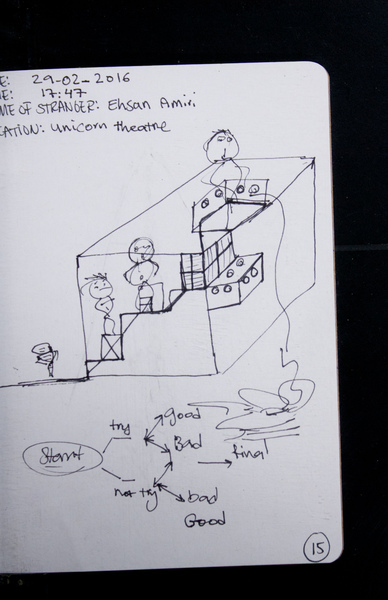 E: 29-02-2016
E: 17:47
ME OF STRANGER: Ehsan Amiri
CATION: Unicorn theatre
try good
Bad
Starrt
final
not try
bad
Good
15